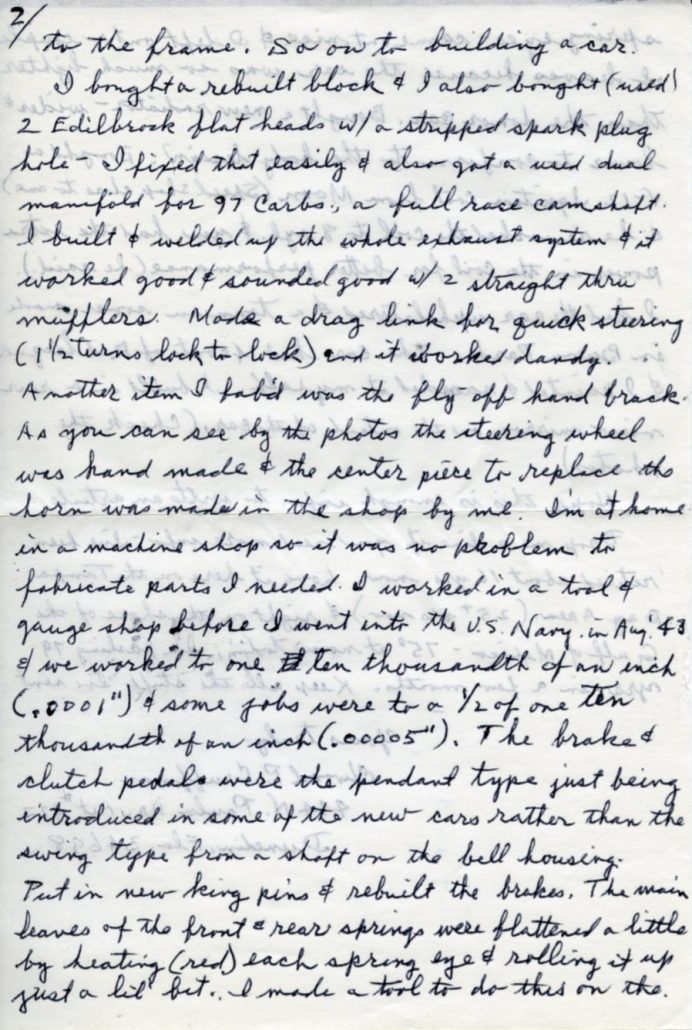 2/
to the frame. So on to building a car.
I bought a rebuilt block & I also bought (used)
2 Edilbrock flat heads w/ a stripped spark plug
hole - I fixed that easily & also got a used dual
manifold for 97 Carbs., a full race camshaft.
I built & welded up the whole exhaust system & it
worked good & sounded good w/ 2 straight thru
mufflers. Made a drag link for quick steering
(1 1/2 turns lock to lock) and it worked dandy.
Another item I fab'd was the fly off hand brack.
As you can see by the photos the steering wheel
was hand made & the center piece to replace the
horn was made in the shop by me. I'm at home
in a machine shop so it was no problem to
fabricate parts I needed. I worked in a tool &
gauge shop before I went into the U.S. Navy in Aug. 43
& we worked to one ten thousandth of an inch
(.0001") & some jobs were to a 1/2 of one ten
thousandth of an inch (.00005"). The brake &
clutch pedals were the pendant type just being
introduced in some of the new cars rather than the
swing type from a shaft on the bell housing.
Put in new king pins & rebuilt the brakes. The main
leaves of the front & rear springs were flattened a little
by heating (red) each spring eye & rolling it up
just a lil' bit. I made a tool to do this on the.